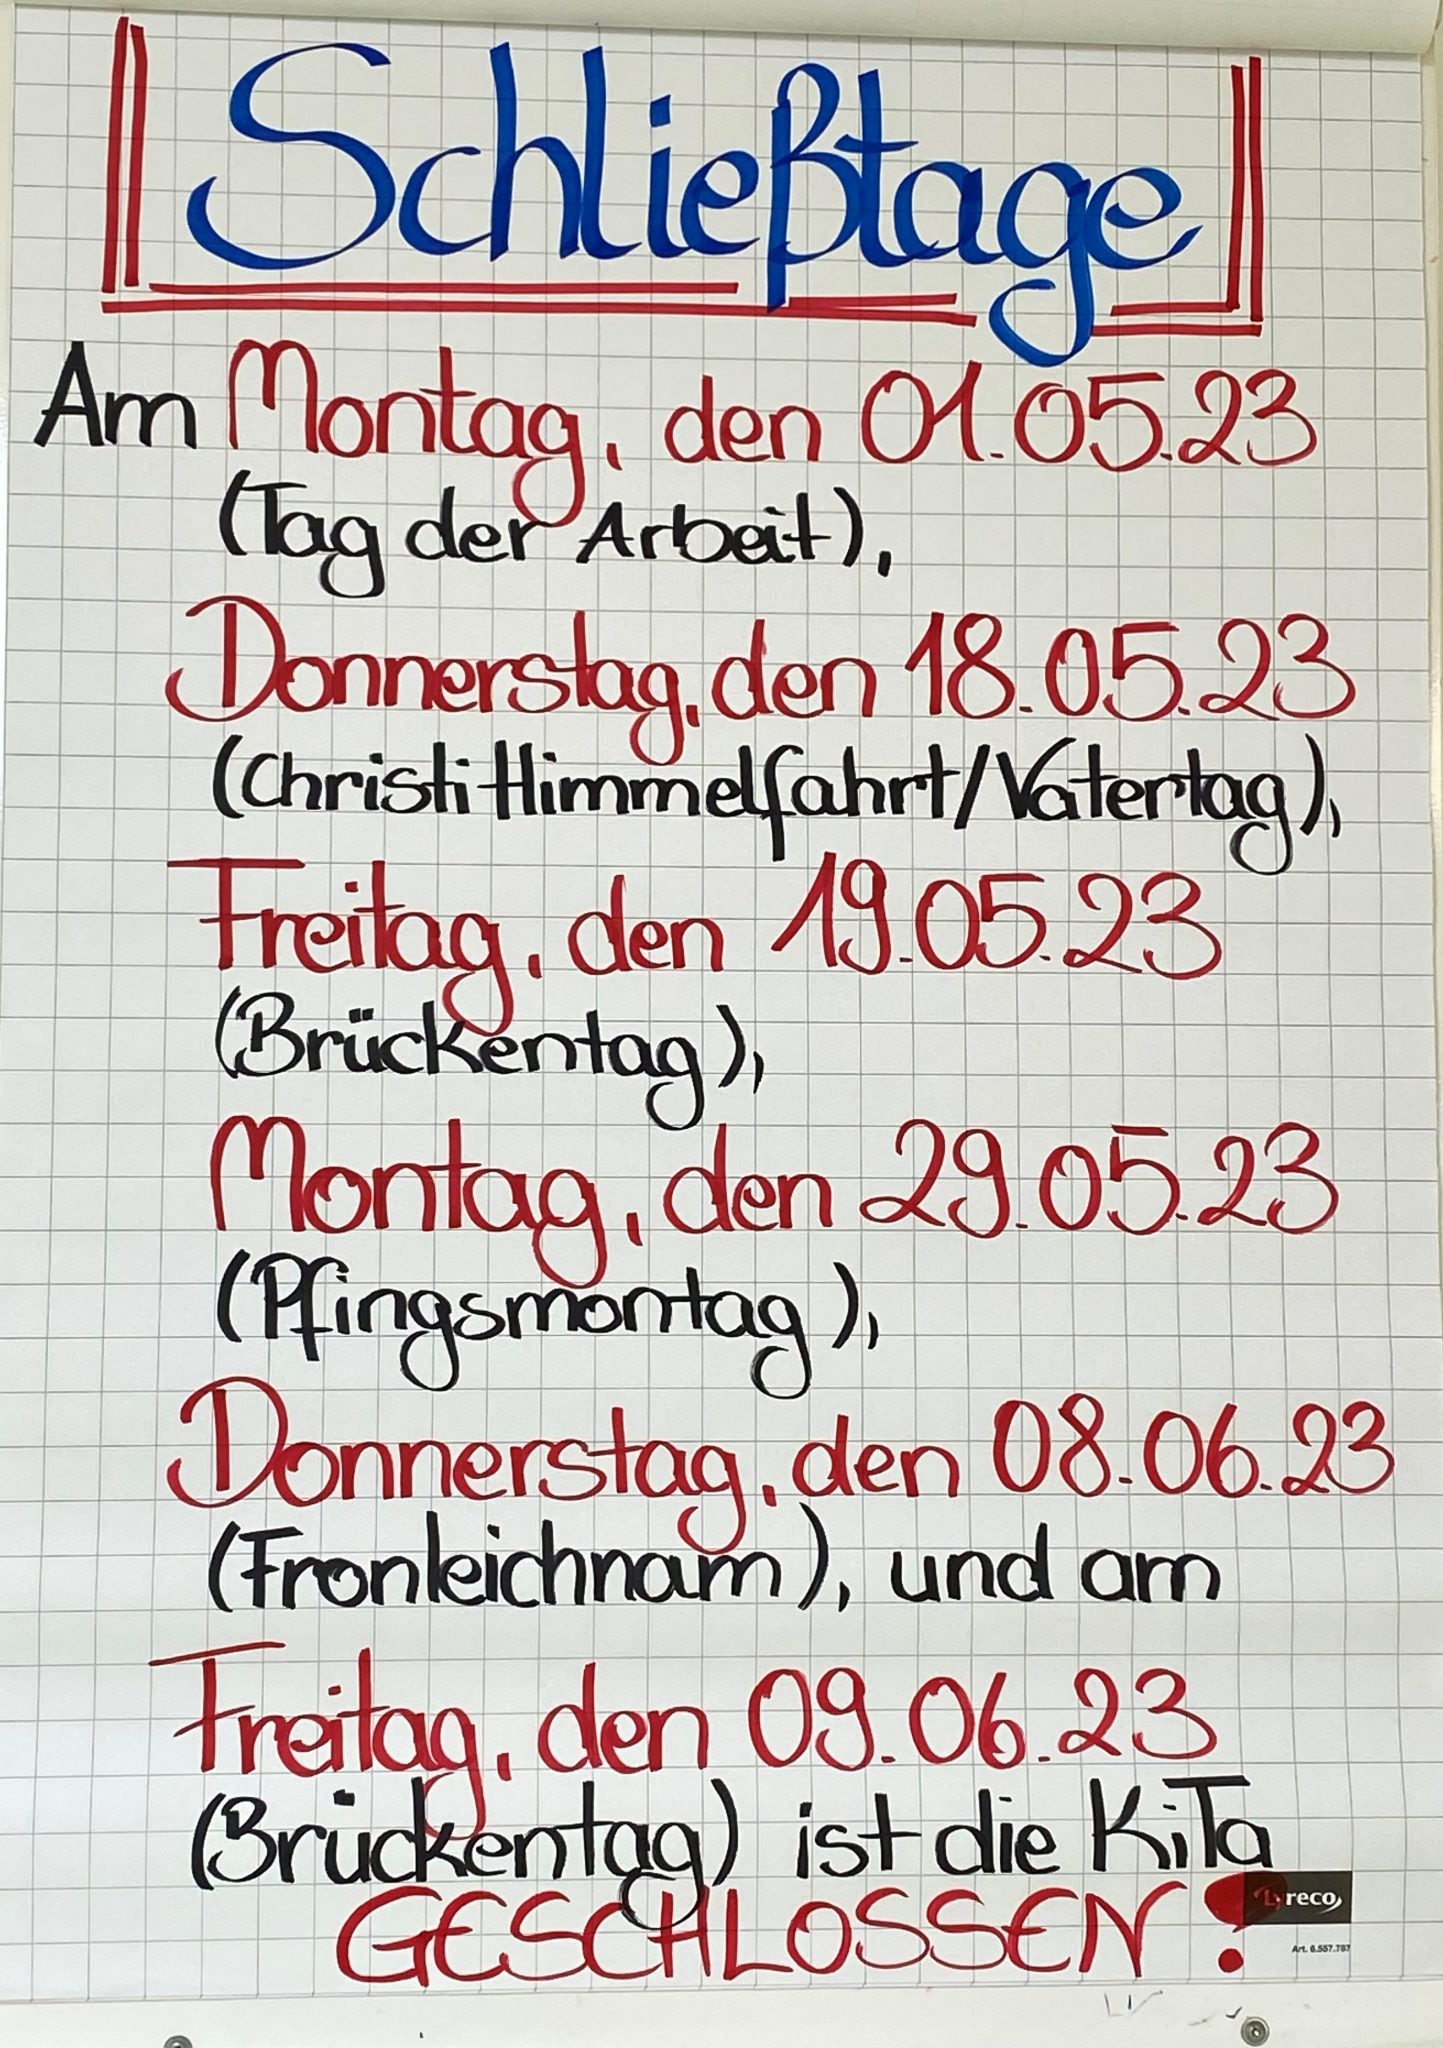 Schließtage
Am Montag, den 01.05.23
(Tag der Arbeit),
Donnerstag, den 18.05.23
(Christi Himmelfahrt/Vatertag),
Freitag, den 19.05.23
(Brückentag),
Montag, den 29.05.23
(Pfingsmontag),
Donnerstag, den 08.06.23
(Fronleichnam), und am
Freitag, den 09.06.23
(Brückentag) ist die KiTa
GESCHLOSSEN!
Lyreco
Art. 6.557.787